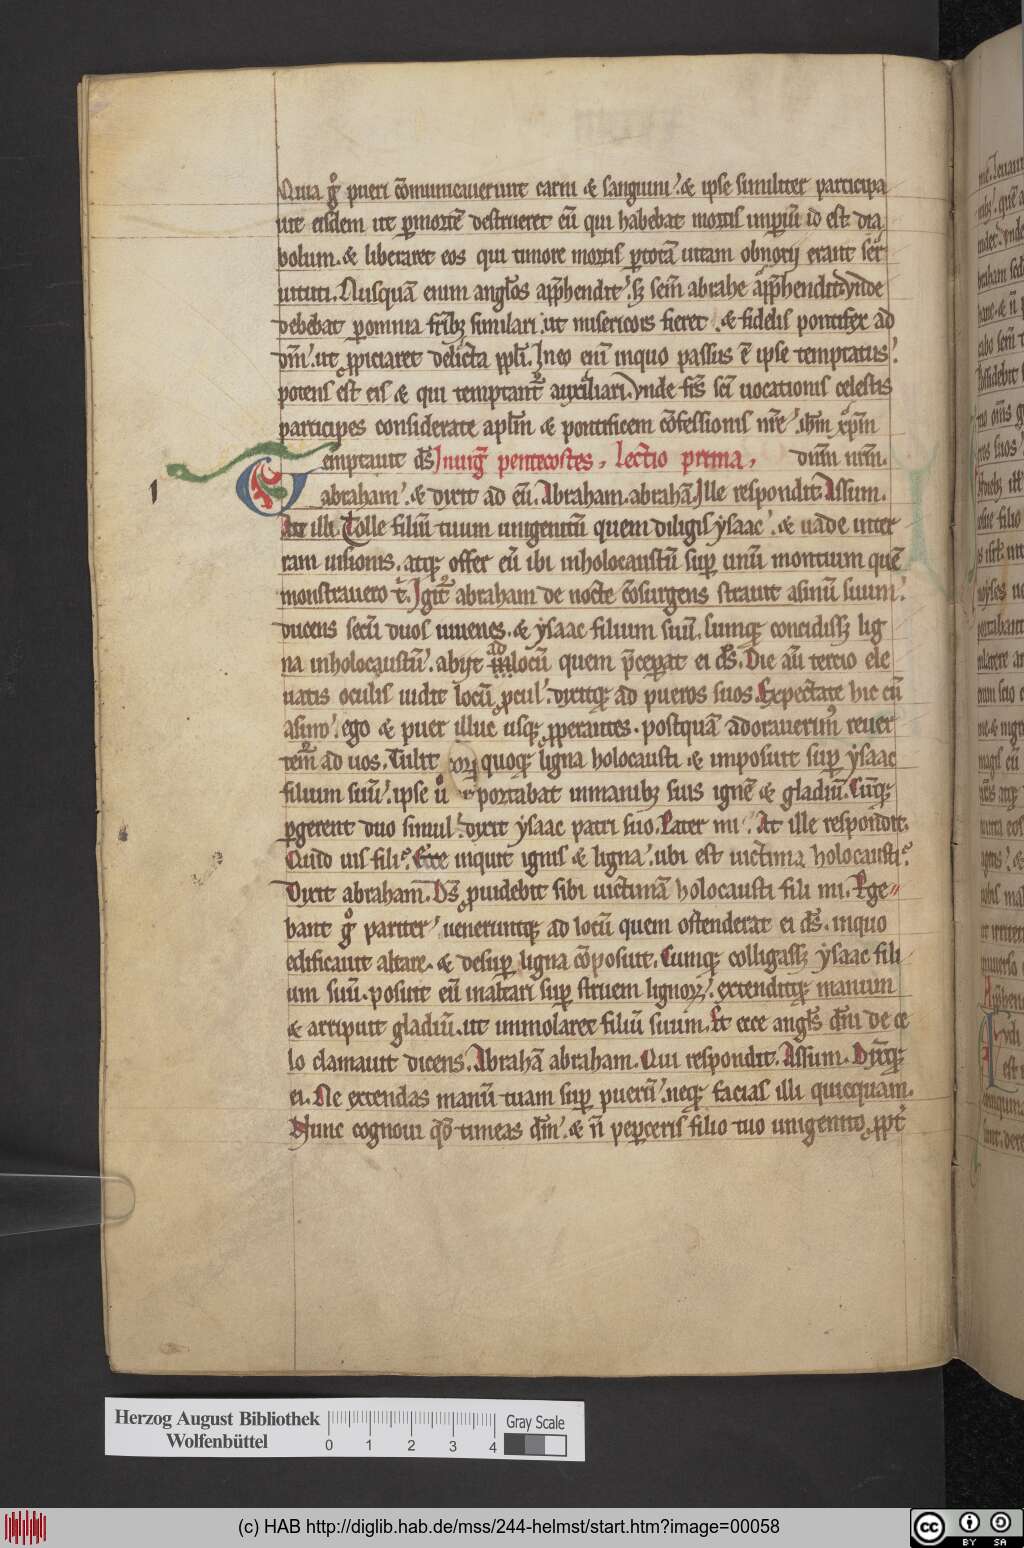 Quia gͦ pueri cōmunicauerunt carni & sanguini.́ & ipse similiter participa
uit eisdem ut ꝑmortē destrueret eū qui habebat mortis imꝑiū id est dia
bolum. & liberaret eos qui timore mortis ꝑtotā uitam obnoxij erant ẜer
uituti. Nusquā enim anglos app̄hendit.́ sꝫ sem̄ abrahe app̄hendit. Vnde
debebat ꝑomnia fr̄ibꝫ similari ut misericors fieret. & fidelis pontifex ad
dm̄.́ ut ꝓpiciaret delicta ppl̓i. Ineo eni̅ inquo passus ē ipse temptatus.́
potens est eis & qui temptant᷑ auxiliari. Vnde fr̄s sc̄i uocationis celestis
participes considerate apl̄m & pontificem cōfessionis nr̄e.́ ihm̄ xp̄m
dūm nrm̄.
Temptauit ds̄ In uiǵ pentecostes. lectio prima.
abraham.́ & dixit ad eū. Abraham. abrahā. Ille respondit. Assum.
Ait illi. Tolle filiū tuum unigenitū quem diligis ysaac.́ & uade inter
ram uisionis. atqꝫ offer eū ibi inholocaustū suꝑ unū montium quē
monstrauero t͛. Igit᷑ abraham de nocte cōsurgens strauit asinū suum.́
ducens secū duos iuuenes. & ysaac filium suū. Cumqꝫ concidissꝫ lig
na inholocaustū.́ abijt ad locū quem p̄ceꝑat ei ds̄. Die au̅ tercio ele
uatis oculis uidit locū ꝓcul.́ dixitqꝫ ad pueros suos. Expectate hic cū
asino.́ ego & puer illuc usqꝫ ꝓperantes. postquā adorauerim᷒ reuer
tem᷑ ad uos. Tulit quoqꝫ ligna holocausti & imposuit suꝑ ysaac
filium suū.́ ipse uͦ portabat inmanibꝫ suis ignē & gladiū. Cūqꝫ
ꝑgerent duo simul.́ dixit ysaac patri suo. Pater mi.́ At ille respondit.
Quid uis fili? Ecce inquit ignis & ligna.́ ubi est uictima holocausti?
Dixit abraham̄. Ds̄ ꝓuidebit sibi uictimā holocausti fili mi. Perge=
bant gͦ pariter.́ ueneruntqꝫ ad locū quem ostenderat ei ds̄. inquo
edificauit altare. & desuꝑ ligna cōposuit. Cumqꝫ colligassꝫ ysaac fili
um suū. posuit eū inaltari suꝑ struem lignoꝝ.́ extenditqꝫ manum
& arripuit gladiū. ut immolaret filiū suum. Et ecce angl̄s dn̄i de ce
lo clamauit dicens. Abrahā abraham. Qui respondit. Assum. Dixitqꝫ
ei. Ne extendas manū tuam suꝑ puerū.́ neqꝫ facias illi quicquam.
Nunc cognoui qd̄ timeas dm̄.́ & n̄ peꝑceris filio tuo unigenito ꝓpt͛
1
Herzog August Bibliothek
Wolfenbüttel
0 1 2 3 4
Gray Scale
(c) HAB http://diglib.hab.de/mss/244-helmst/start.htm?image=00058
cc BY SA